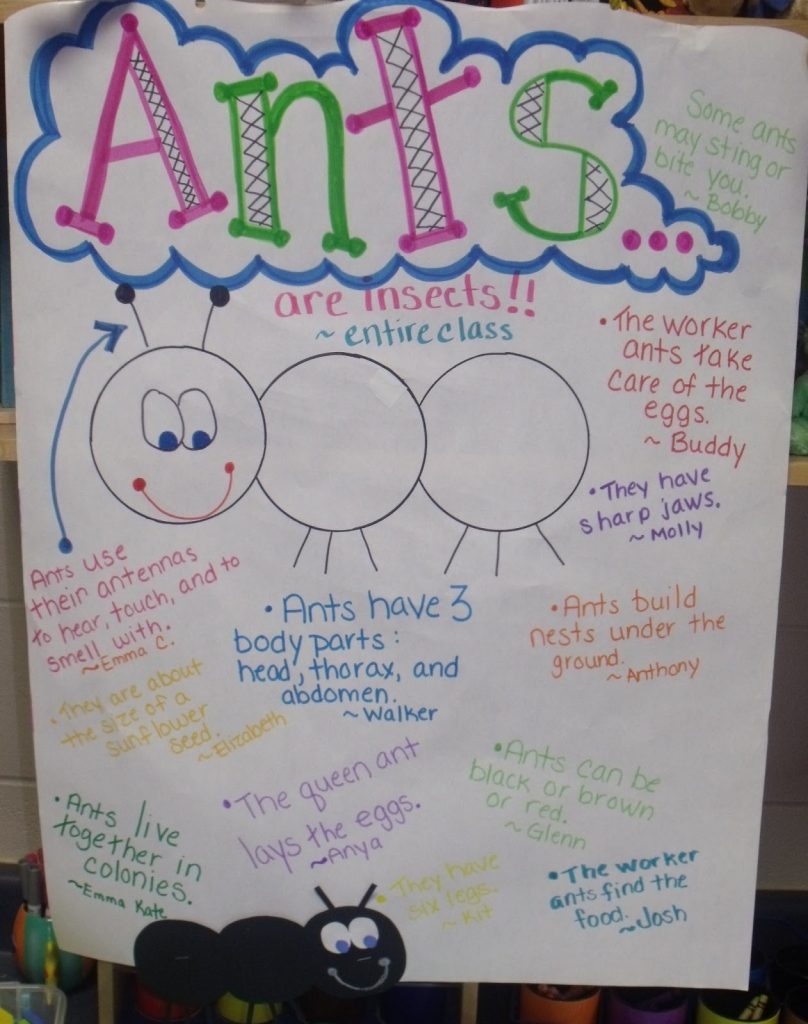 Ants...
are insects!!
~ entire class
Some ants
may sting or
bite you.
~ Bobby
• The worker
ants take
care of the
eggs.
~ Buddy
• They have
sharp jaws.
~ Molly
Ants use
their antennas
to hear, touch, and to
smell with.
~ Emma C.
• Ants have 3
body parts:
head, thorax, and
abdomen.
~ Walker
• Ants build
nests under the
ground.
~ Anthony
• They are about
the size of a
sunflower
seed.
~ Elizabeth
• The queen ant
lays the eggs.
~ Anya
• Ants can be
black or brown
or red.
~ Glenn
• Ants live
together in
colonies.
~ Emma Kate
• They have
six legs.
~ Kit
• The worker
ants find the
food.
~ Josh